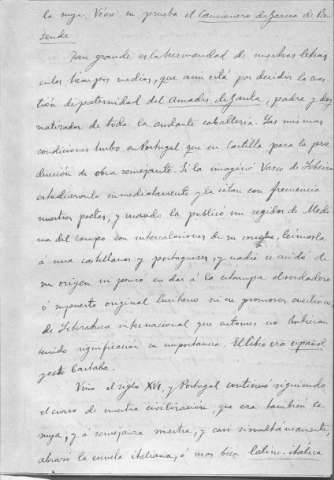 la suya. Véase en prueba el Cancionero de García de Re-
sende.
Tan grande es la hermandad de nuestras letras
en los tiempos medios, que aun está por decidir la cues-
tión de paternidad del Amadís de Gaula, padre y dog-
matizador de toda la andante caballería. Las mismas
condiciones hubo en Portugal que en Castilla para la pro-
ducción de obra semejante. Si la imaginó Vasco de Lobeira
extendiéronla inmediatamente y la citan con frecuencia
nuestros poetas, y cuando la publicó un regidor de Medi-
na del Campo con intercalaciones de su cosecha, leímosla
á una castellanos y portugueses, y nadie se cuidó de
su origen ni pensó en dar á la estampa el verdadero
ó supuesto original lusitano ni en promover cuestiones
de literatura internacional que entonces no hubieran
tenido significación ni importancia. El libro era español
y esto bastaba.
Vino el siglo XVI, y Portugal continuó siguiendo
el curso de nuestra civilización, que era también la
suya, y á semejanza nuestra, y casi simultáneamente,
abrazó la escuela italiana, ó mas bien latino-itálica